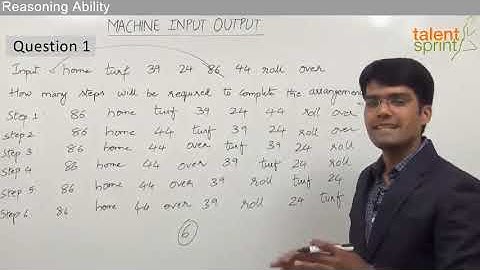 Reasoning Ability
MACHINE INPUT OUTPUT
talent
sprint
Question 1
Input home turf 39 24 86 44 roll over
How many steps will be required to complete the arrangement
Step 1 86 home turf 39 24 44 roll over
Step 2 86 home 44 turf 39 24 roll over
Step 3 86 home 44 over turf 39 24 roll
Step 4 86 home 44 over 39 turf 24 roll
Step 5 86 home 44 over 39 roll turf 24
Step 6 86 home 44 over 39 roll 24 turf
6